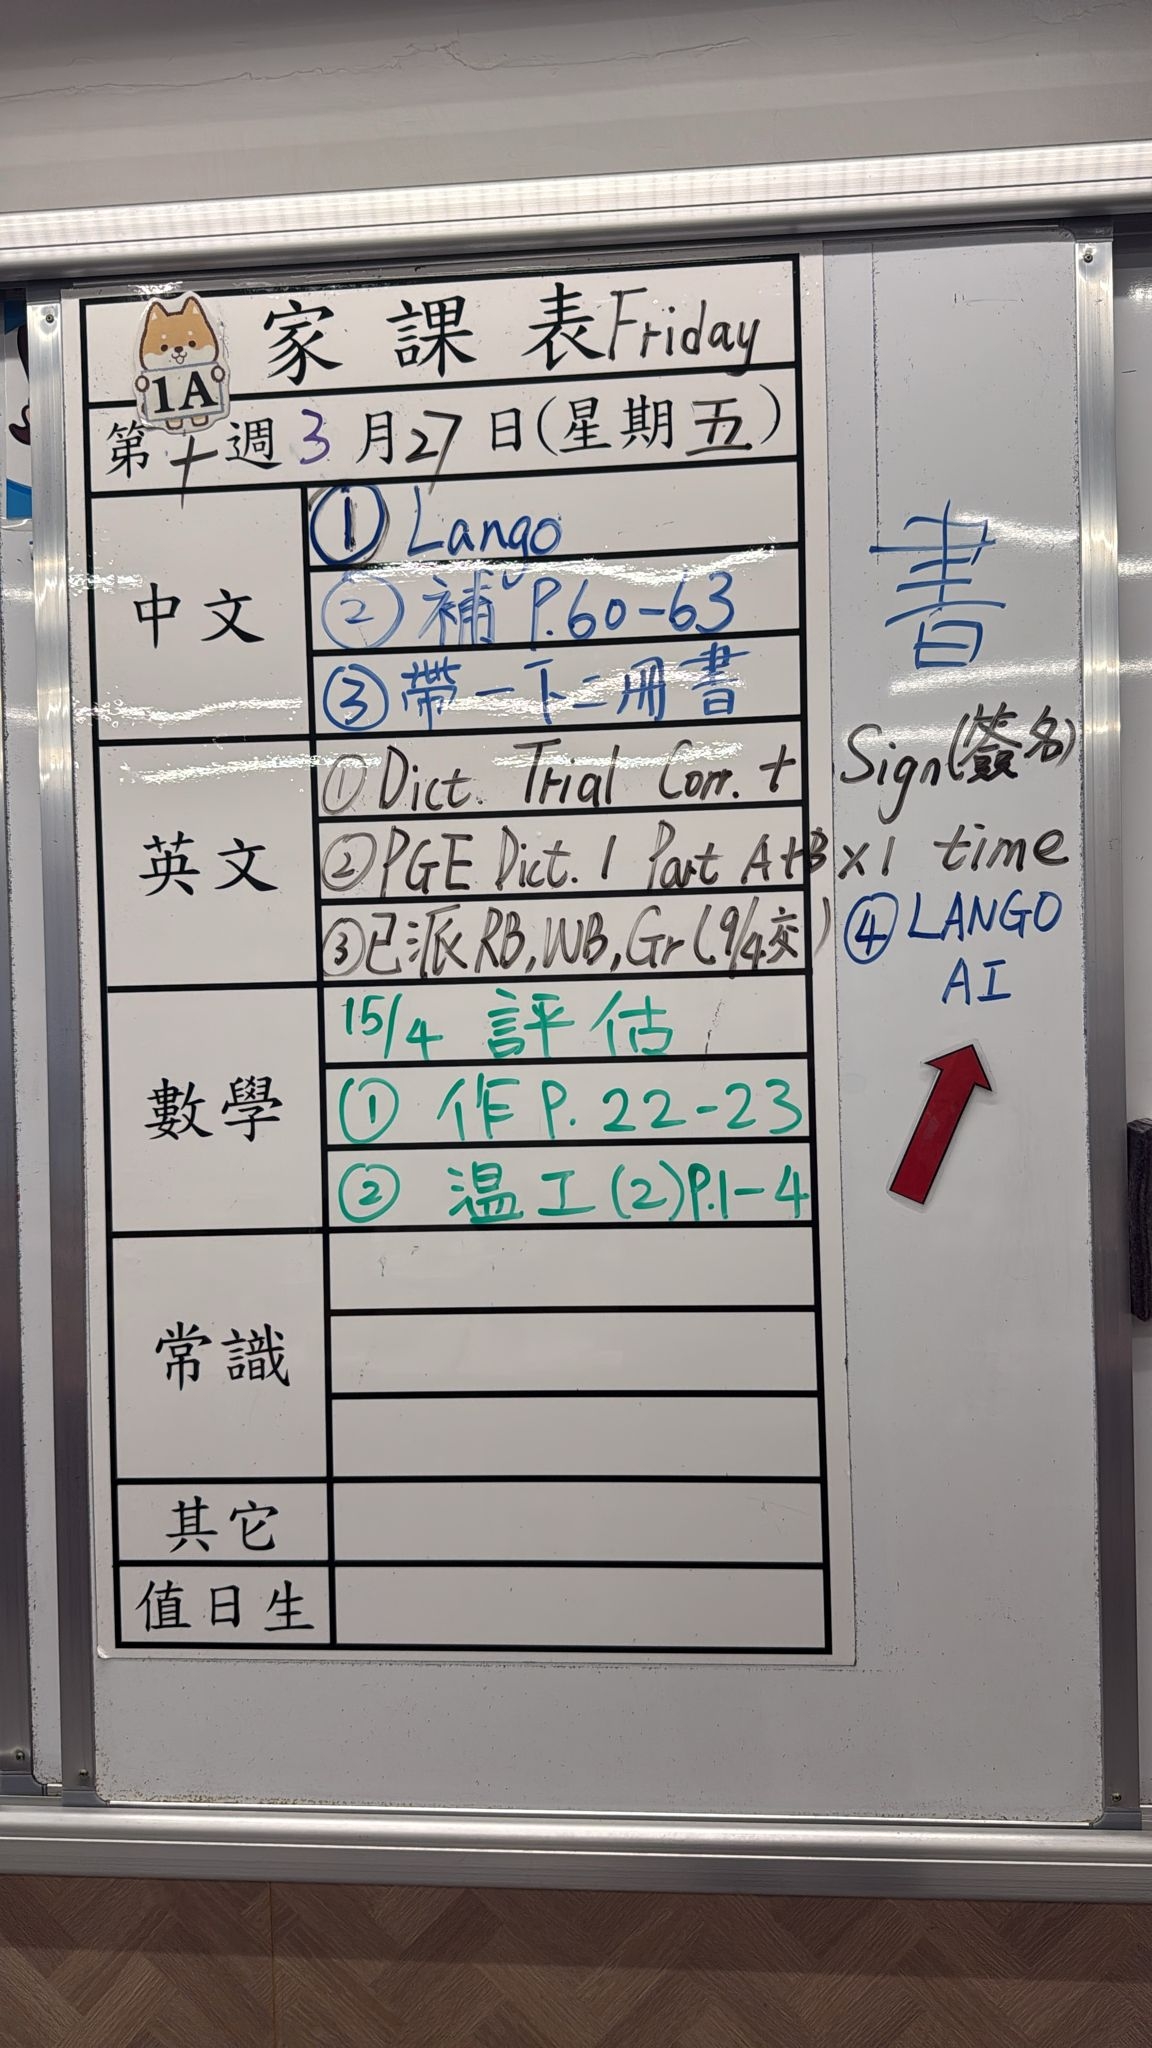 家課表 Friday
1A
第十週 3月27日(星期五)
中文
① Lango
② 補 P.60-63
③ 帶一下二冊書
書
英文
① Dict. Trial Corr. + Sign(簽名)
② PGE Dict. 1 Part A+B x1 time
③ 已派 RB, WB, Gr (9/4交)
④ LANGO
AI
數學
15/4 評估
① 作 P. 22-23
② 溫工(2)P.1-4
常識
其它
值日生